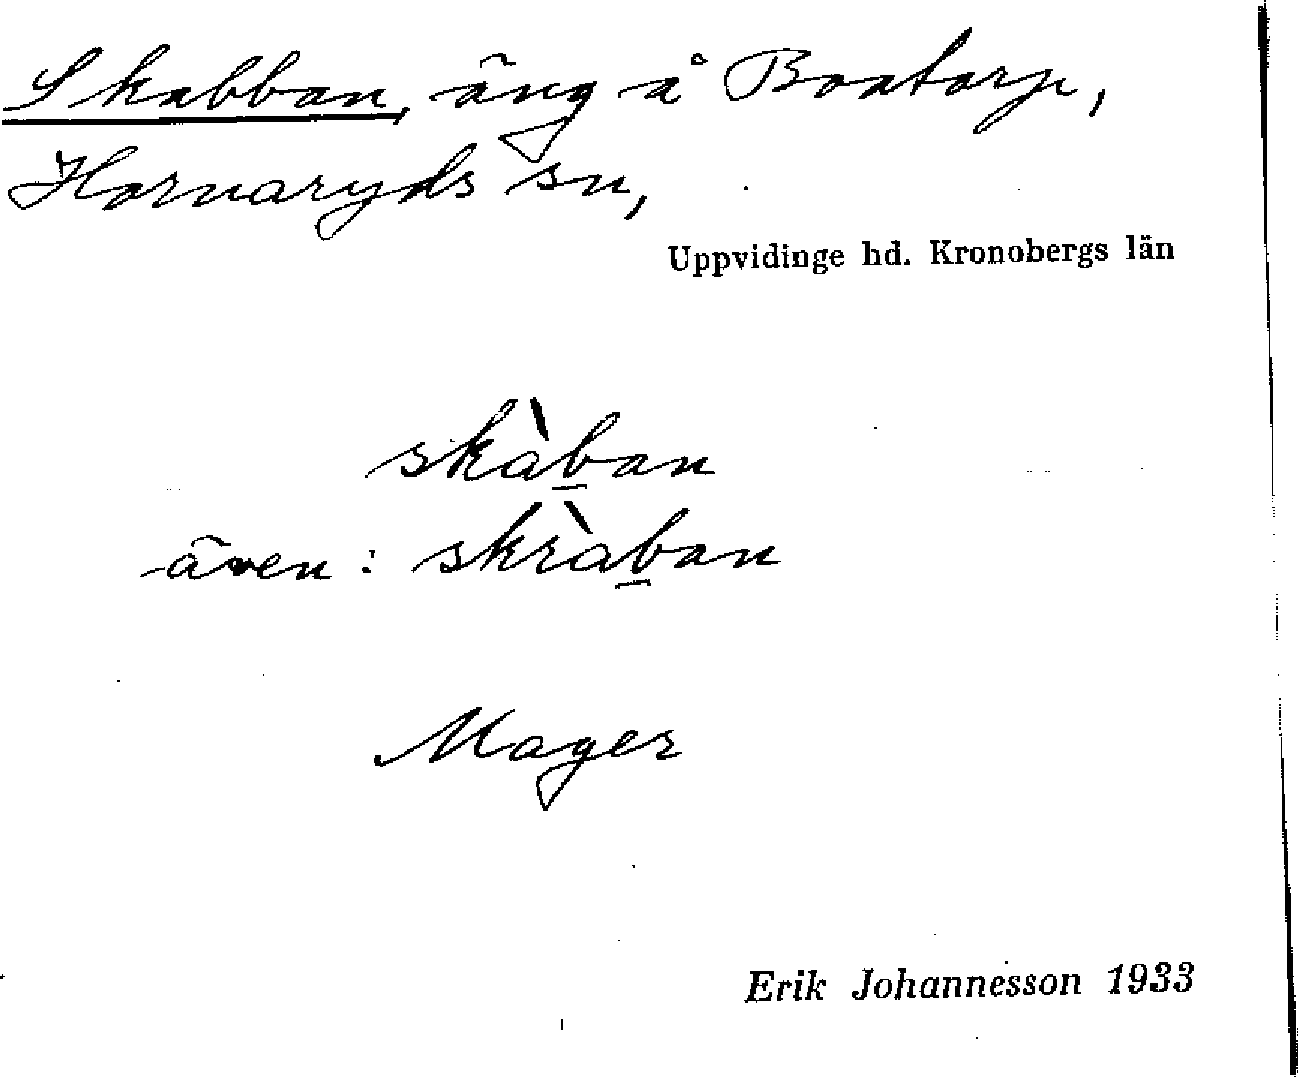 Skabban, äng å Boatorp,
Hornaryds sn,
Uppvidinge hd. Kronobergs län
skàb̲an
även: skràb̲an
Mager
Erik Johannesson 1933